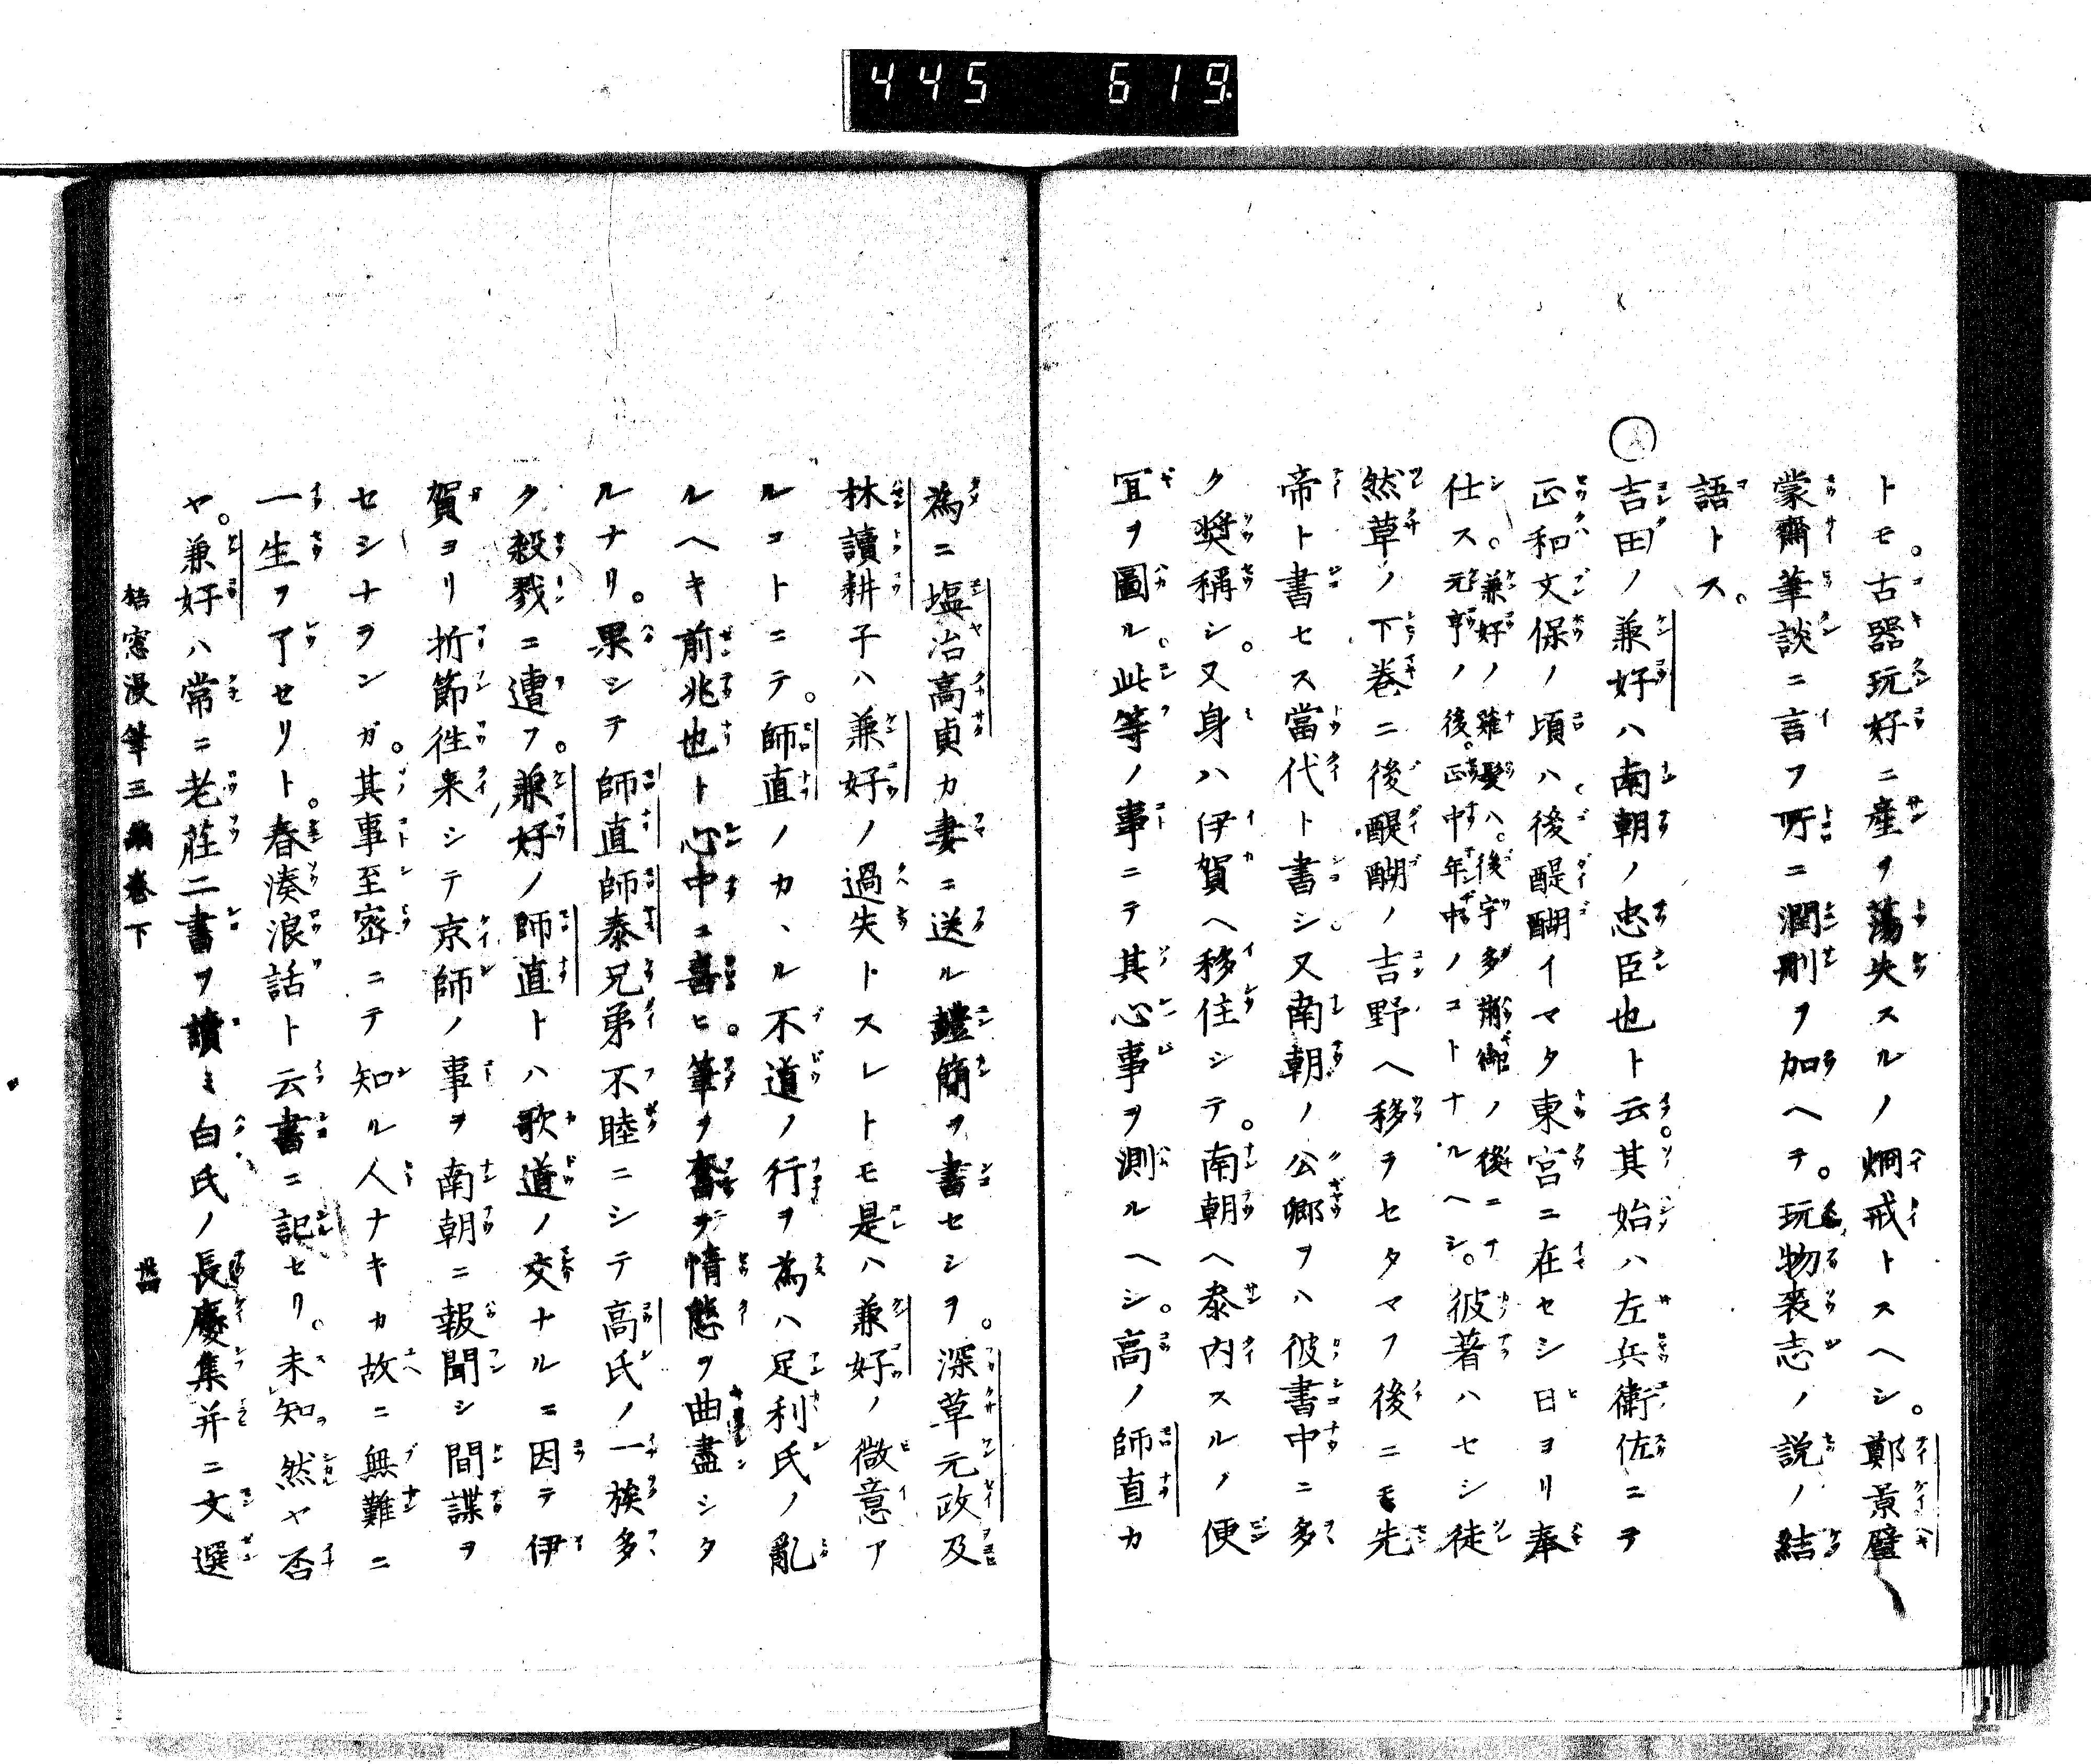 445 619
トモ。古器玩好ニ産ヲ蕩失スルノ炯戒トスヘシ。鄭景璧
蒙齋筆談ニ言フ所ニ潤刪ヲ加ヘテ。玩物喪志ノ説ノ結
語トス。
吉田ノ兼好ハ南朝ノ忠臣也ト云。其始ハ左兵衛佐ニテ
正和文保ノ頃ハ。後醍醐イマタ東宮ニ在セシ日ヨリ奉
仕ス。兼好ノ薙髪ハ。後宇多崩御ノ後ニナ
シ。元亨ノ後。正中年中ノコトナルヘシ。彼著ハセシ徒
然草ノ下巻ニ後醍醐ノ吉野ヘ移ラセタマフ後ニモ先
帝ト書セス當代ト書シ。又南朝ノ公卿ヲハ彼書中ニ多
ク奬稱シ。又身ハ伊賀ヘ移住シテ。南朝ヘ泰内スルノ便
宜ヲ圖ル。此等ノ事ニテ其心事ヲ測ルヘシ。高ノ師直カ
為ニ塩冶高貞カ妻ニ送ル豔簡ヲ書セシヲ。深草元政及
林讀耕子ハ兼好ノ過失トスレトモ是ハ兼好ノ微意ア
ルコトニテ。師直ノカヽル不道ノ行ヲ為ハ足利氏ノ亂
ルヘキ前兆也ト心中ニ喜ヒ。筆ヲ奮テ情態ヲ曲盡シタ
ルナリ。果シテ師直師泰兄弟不睦ニシテ高氏ノ一族多
ク殺戮ニ遭フ。兼好ノ師直トハ歌道ノ交ナルニ因テ伊
賀ヨリ折節徃来シテ京師ノ事ヲ南朝ニ報聞シ間諜ヲ
セシナランガ。其事至密ニテ知ル人ナキカ故ニ無難ニ
一生ヲ了セリト。春湊浪話ト云書ニ記セリ。未知然ヤ否
ヤ。兼好ハ常ニ老莊二書ヲ讀ミ白氏ノ長慶集并ニ文選
窓漫筆三編巻下